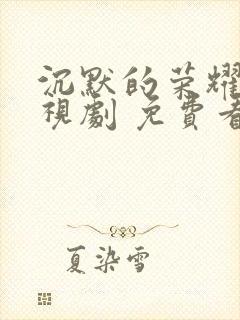 沉默的荣耀
視劇 免費看
夏染雪